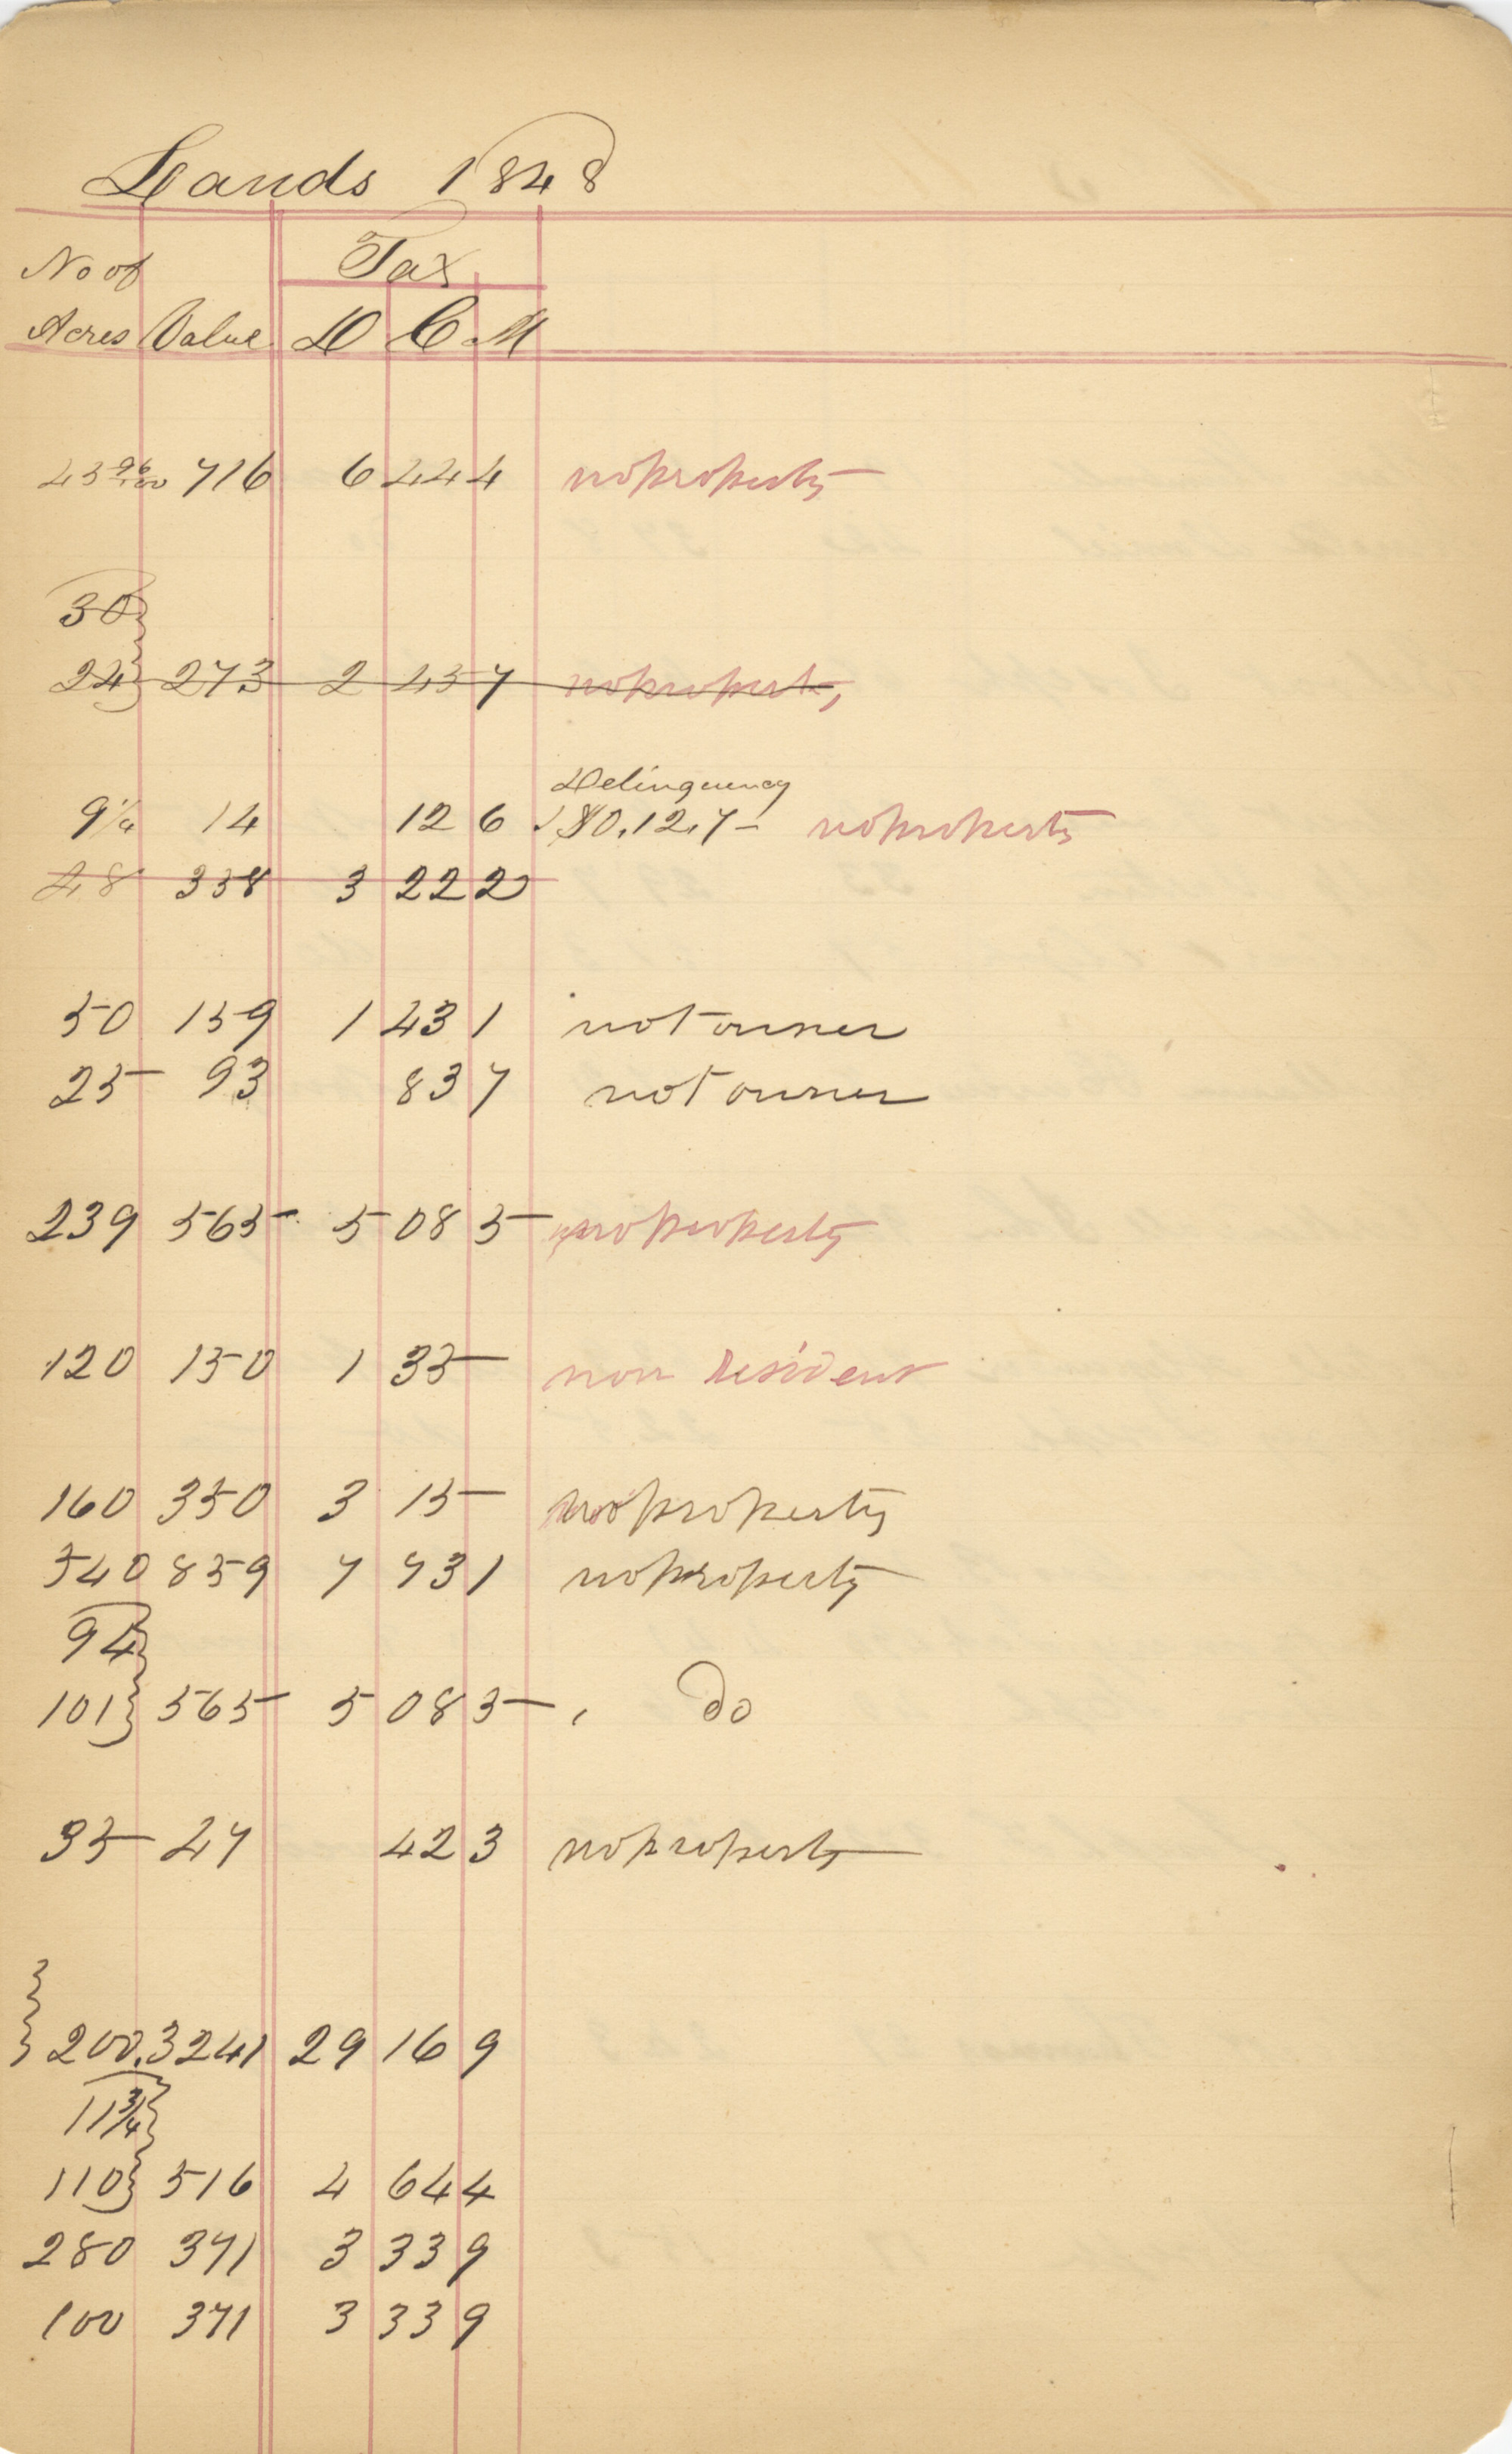 Lands 1848
No of Tax
Acres Value D C M
43 96/100 716 6 44 4 no property
30
24 273 2 45 7 no property
Delinquency
9 1/4 14 12 6 $0.12.7- no property
48 358 3 22 2
50 159 1 43 1 not owner
25 93 83 7 not owner
239 565 5 08 5 no property
120 150 1 35 non resident
160 350 3 15 no property
540 859 7 73 1 no property
94
101 565 5 08 5 do
35 47 42 3 no property
200 3241 29 16 9
11 3/4
110 516 4 64 4
280 371 3 33 9
100 371 3 33 9